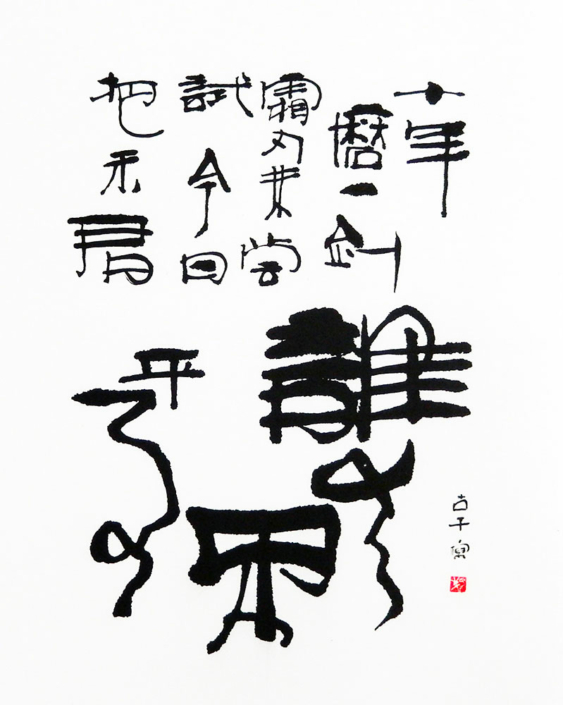 十年
磨一劍
霜刃未嘗
試今日
把示君
誰
不
平事
古干寫